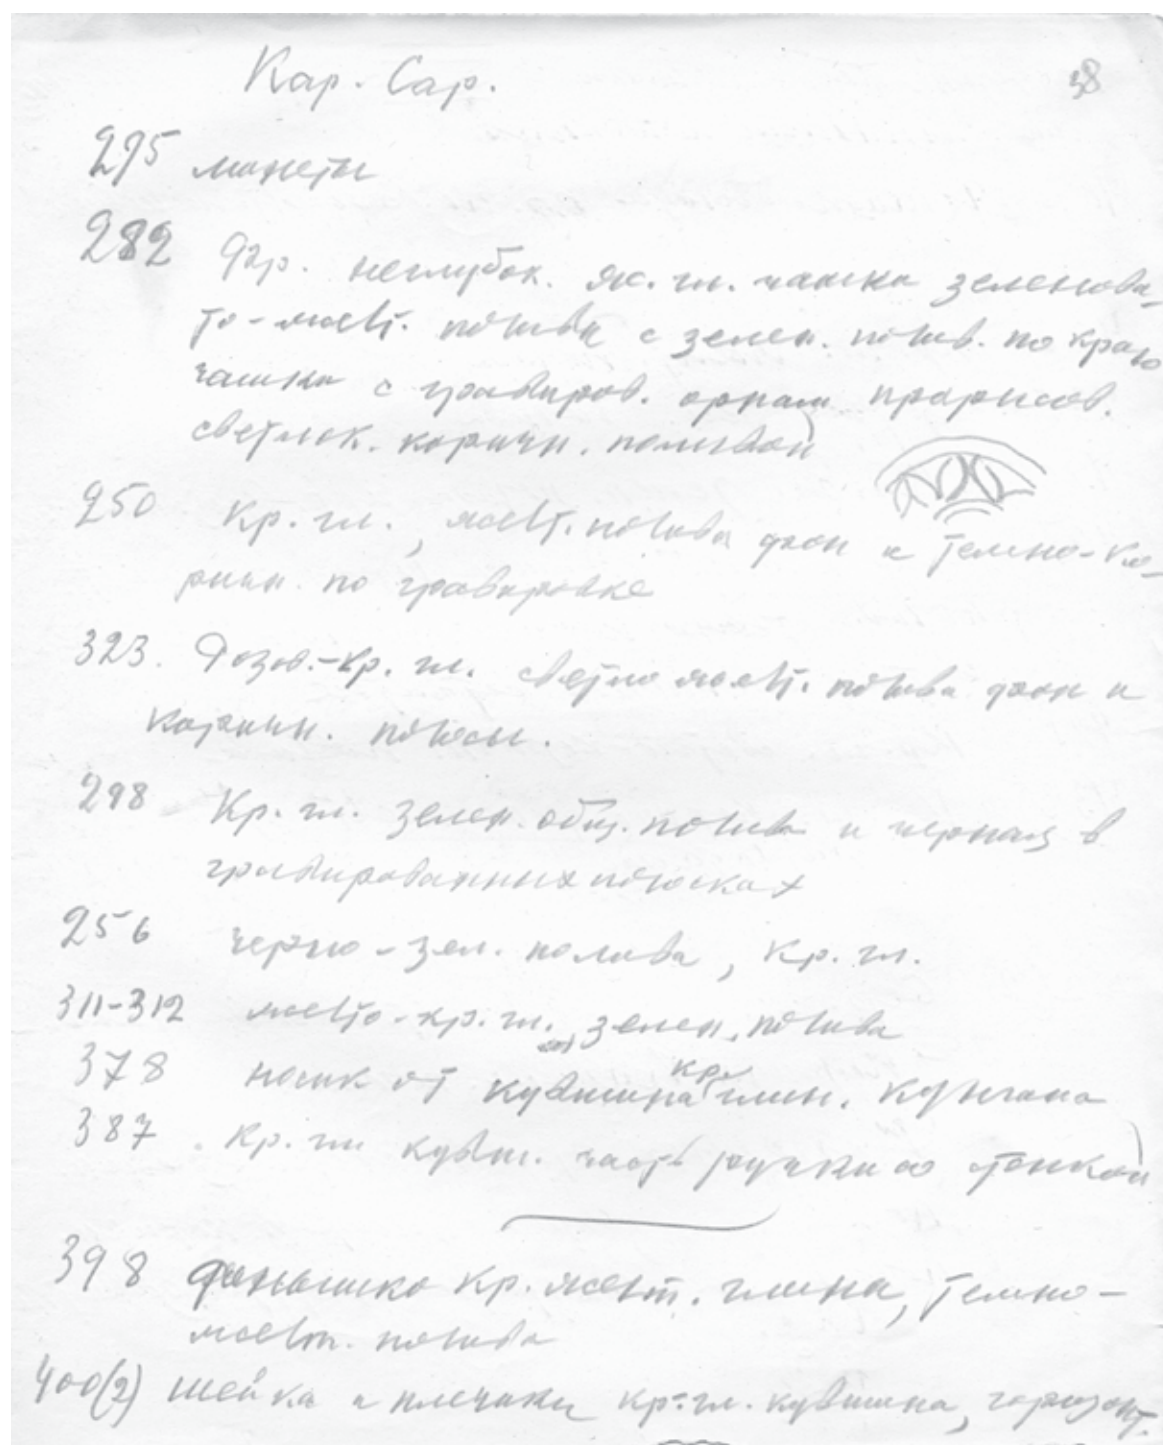 Кар. Сар.
38
275 монеты
282 фр. неглубок. ж. гл. чашка зеленова-
то-желт. полива с зелен. полив. по краю
чашки с гравиров. орнам прорисов.
светлок. коричн. поливой
250 Кр. гл., желт. полива фон и темно-ко-
ричн. по гравировке
323. Розов.-кр. гл. светло желт. полива фон и
коричн. полосы.
298 Кр. гл. зелен. общ. полива и черная в
гравированных полосках
256 черно-зел. полива, кр. гл.
311-312 желто-кр. гл., зелен. полива
378 носик от кувшина кр. глин. кумгана
387 . Кр. гл кувш. часть ручки со стенкой
398 донышко кр. желт. глина, темно-
желт. полива
400(2) шейка и плечики кр. гл. кувшина, горизонт.